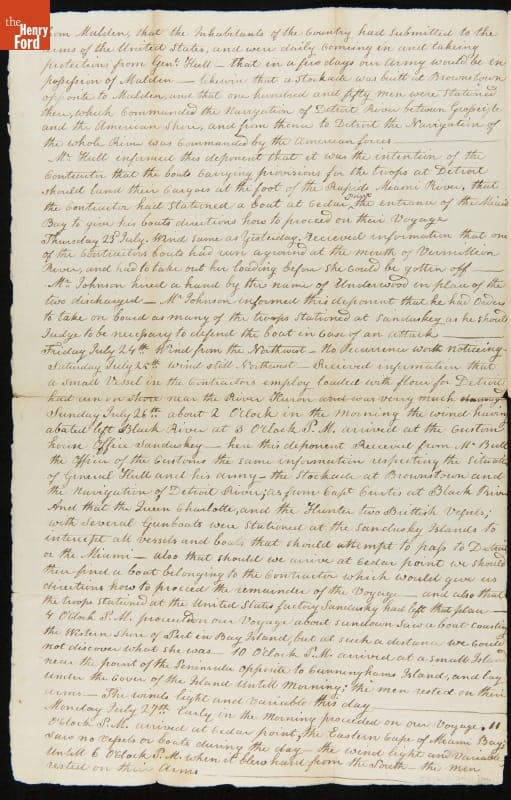 the
Henry
Ford
from Malden, that the Inhabitants of the Country had Submitted to the
arms of the United States, and were daily Comeing in and takeing
protections from Genl. Hull — that in a few days our Army would be in
possession of Malden — likewise that a Stockade was built at Brownstown
opposite to Malden, and that one hundred and fifty men were Stationed
there, which Commanded the Navigation of Detroit River between Grosseisle
and the American Shore, and from thence to Detroit the Navigation of
the whole River was Commanded by the American forces
Mr. Hull informed this deponent that it was the intention of the
Contractor that the boats Carrying provisions for the troops at Detroit
should land their Cargoes at the foot of the Rapids Miami River, that
the Contractor had Stationed a boat at Cedar Point the entrance of the Miami
Bay to give his boats directions how to proceed on their Voyage
Thursday 23d July. Wind same as Yesterday. Recieved information that one
of the Contractors boats had run aground at the mouth of Vermillion
River, and had to take out her loading before she could be gotten off —
Mr. Johnson hired a hand by the name of Underwood in place of the
two discharged — Mr. Johnson informed this deponent that he had Orders
to take on board as many of the troops Stationed at Sandusky as he should
Judge to be necessary to defend the boat in Case of an attack
Friday July 24th. Wind from the Northwest — No Occurrence worth noticeing
Saturday July 25th wind still Northwest — Recieved information that
a Small Vessel in the Contractors employ loaded with flour for Detroit
had run on Shore near the River Huron and was very much
Sunday July 26th. about 2 O'Clock in the Morning the wind having
abated left Black River at 3 O'Clock P.M. arrived at the Custom
house Office Sandusky — here this deponent Received from Mr. Bull
the Officer of the Customs the same information respecting the Situation
of General Hull and his army — the Stockade at Brownstown and
the Navigation of Detroit River; as from Capt Curtis at Black River
And that the Queen Charlotte, and the Hunter two British Vessels;
with Several Gunboats were Stationed at the Sandusky Islands to
intercept all vessels and boats that should attempt to pass to Detroit
or the Miami — also that should we arrive at Cedar point we should
there find a boat belonging to the Contractor which would give us
directions how to proceed the remainder of the Voyage — and also that
the troops stationed at the United States factory Sandusky had left that place —
4 O'Clock P.M. proceeded on our Voyage about sundown Saw a boat coasting
the Western Shore of Put in Bay Island, but at such a distance we Could
not discover what she was — 10 O'Clock P.M. arrived at a Small Island
near the point of the Peninsula opposite to Cunninghams Island, and lay
under the Cover of the Island Untill Morning; the men rested on their
arms — The winds light and variable this day
Monday July 27th. Early in the Morning proceeded on our Voyage. 11
O'Clock P.M. arrived at Cedar point, the Eastern Cape of Miami Bay;
saw no vessels or boats during the day — the wind light and Variable
Untill 6 O'Clock P.M. when it blew hard from the South — the men
rested on their Arms